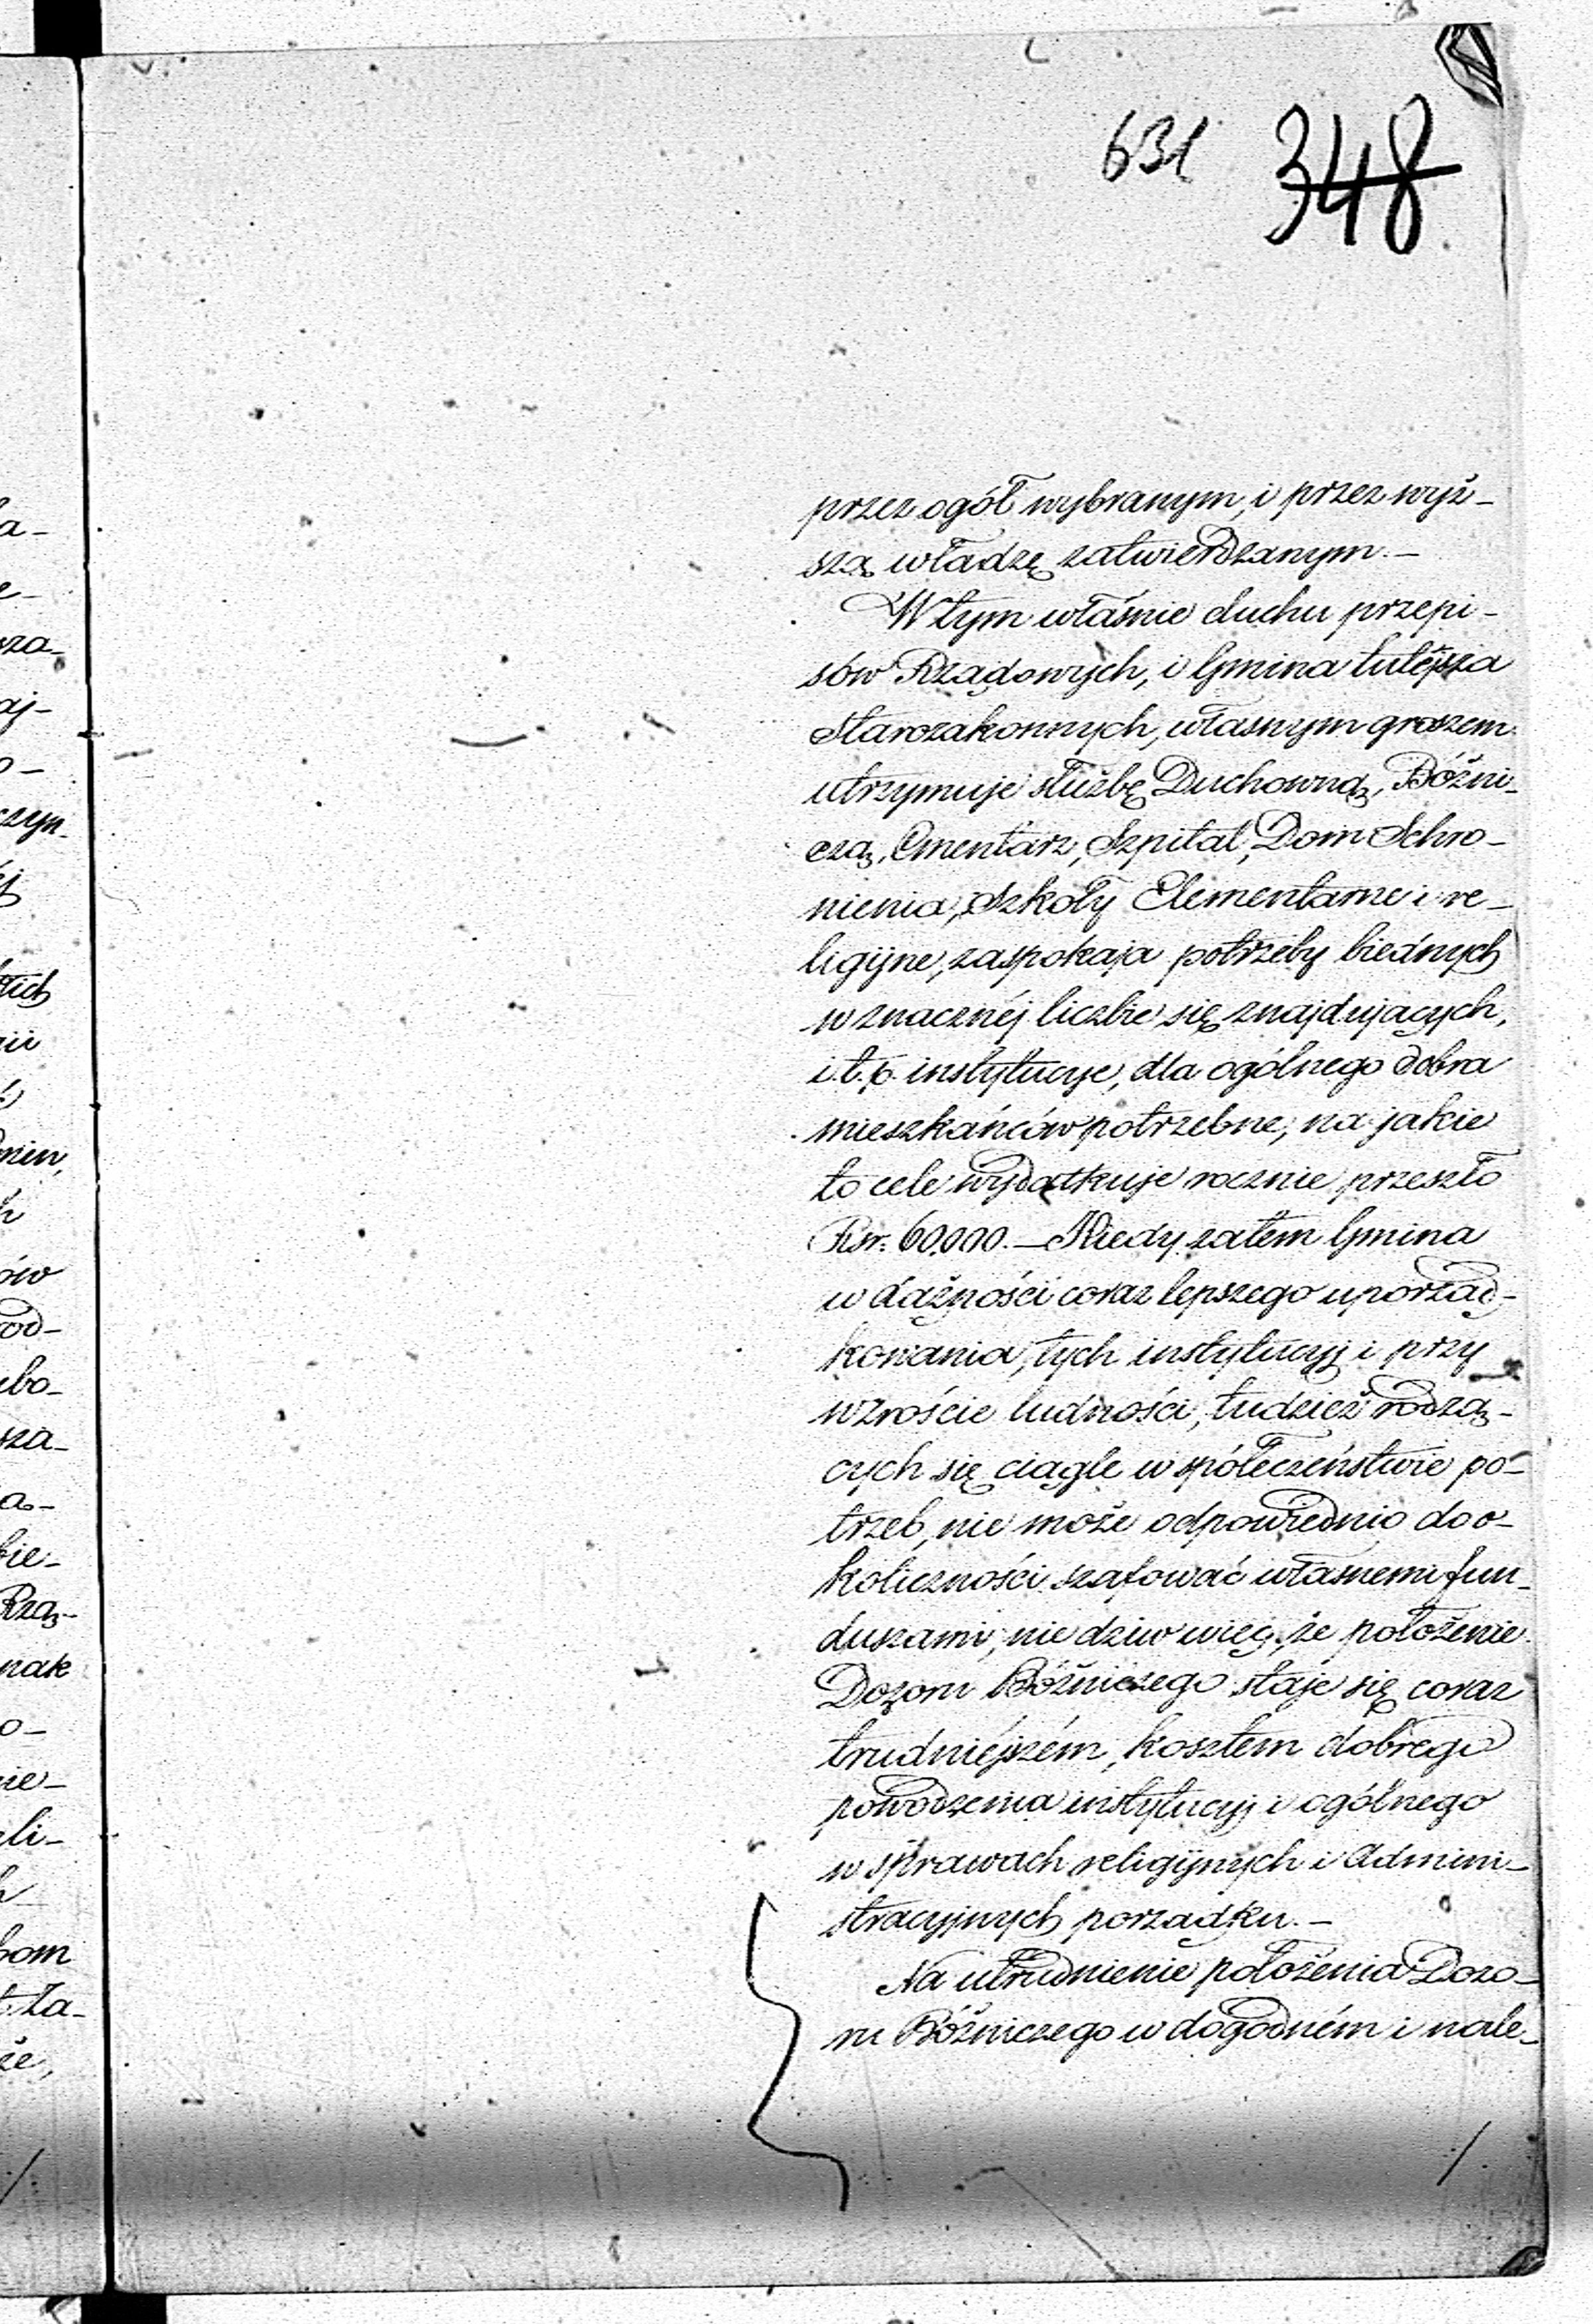 631 348
przez ogół wybranym, i przez wyż-
szą władzę zatwierdzanym. —
W tym właśnie duchu przepi-
sów Rządowych, i Gmina tutéjsza
Starozakonnych, własnym groszem
utrzymuje służbę Duchowną, Bóźni-
czą, Cmentarz, Szpital, Dom Schro-
nienia, Szkoły Elementarne i re-
ligijne, zaspokaja potrzeby biednych
w znacznéj liczbie się znajdujących,
i.t.p. instytucye, dla ogólnego dobra
mieszkańców potrzebne, na jakie
to cele wydatkuje rocznie przeszło
Rsr. 60,000. — Kiedy zatem Gmina
w dążności coraz lepszego uporząd-
kowania, tych instytucyj i przy
wzroście ludności, tudzież rodzą-
cych się ciągle w spółeczeństwie po-
trzeb, nie może odpowiednio do o-
koliczności szafować własnemi fun-
duszami, nie dziw więc, że położenie
Dozoru Bóźniczego staje się coraz
trudniéjszém, kosztem dobrego
powodzenia instytucyj i ogólnego
w sprawach religijnych i Admini-
stracyjnych porządku. —
Na utrudnienie położenia Dozo-
ru Bóźniczego w dogodném i nale-